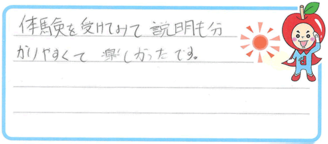 体験を受けてみて説明も分
かりやすくて楽しかったです。